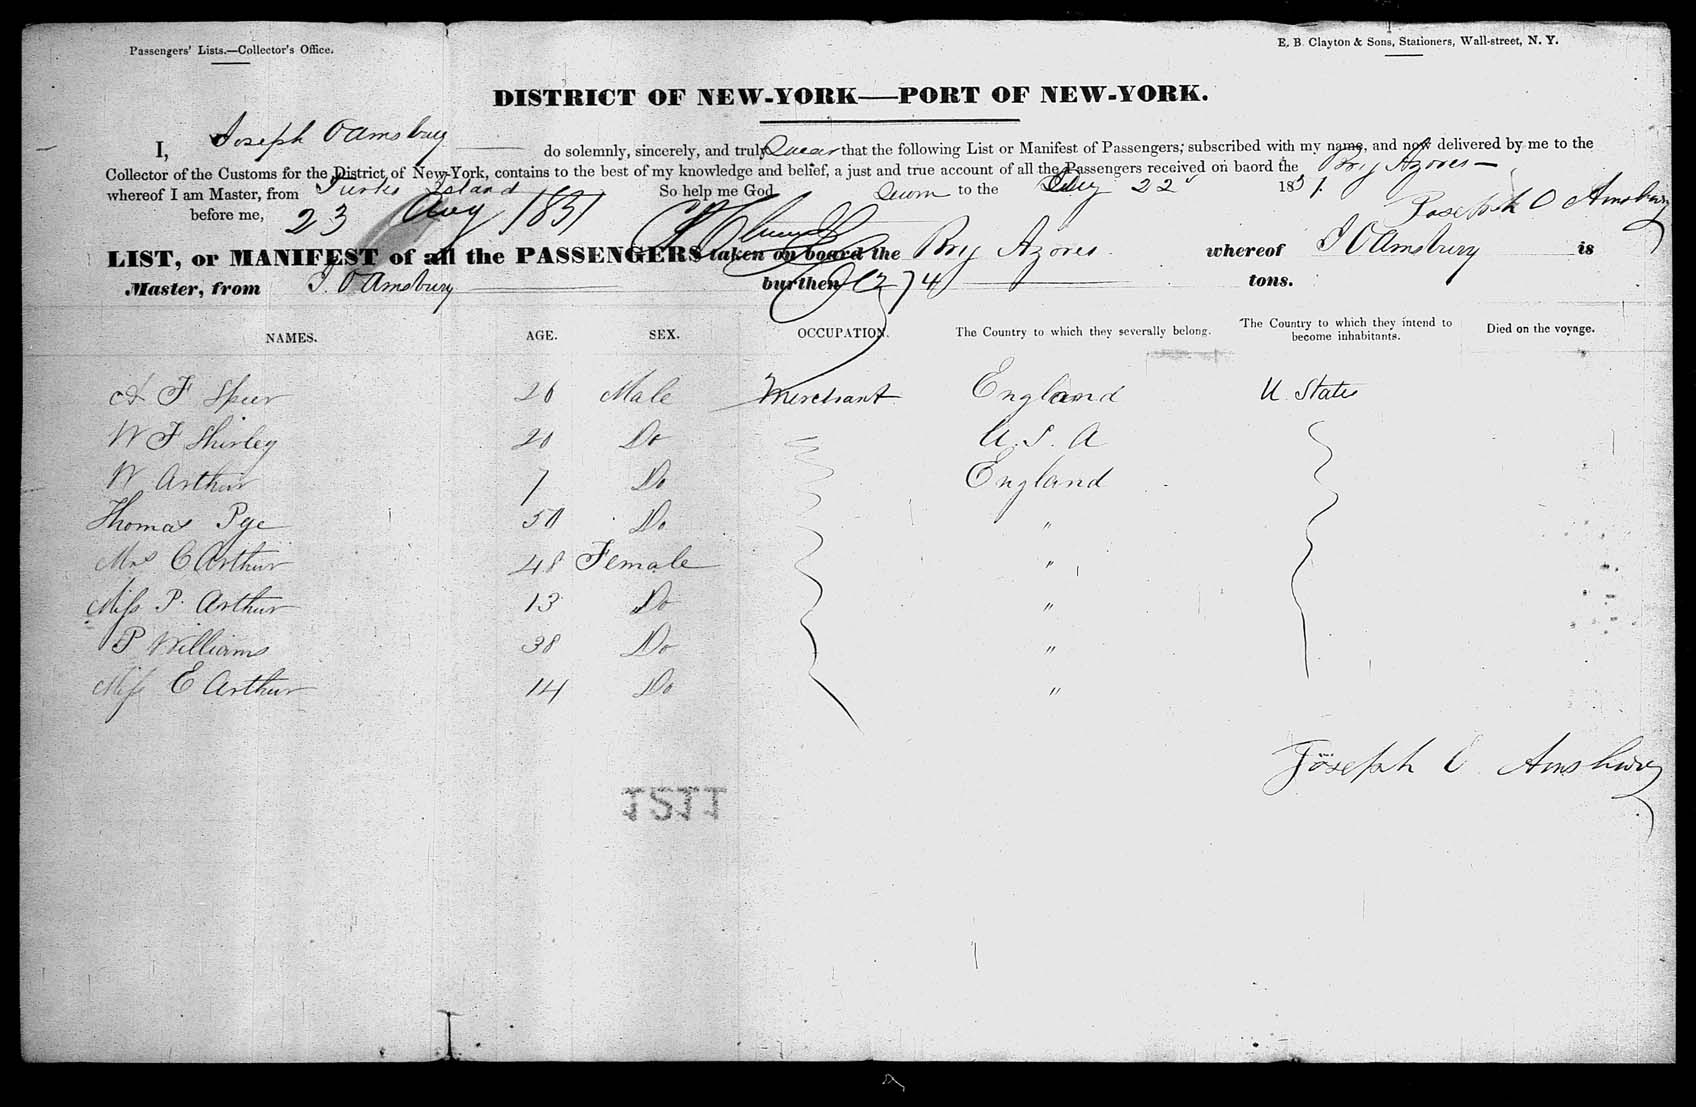 Passengers' Lists.—Collector's Office.
E. B. Clayton & Sons, Stationers, Wall-street, N. Y.
DISTRICT OF NEW-YORK—PORT OF NEW-YORK.
I, Joseph O Amsbury do solemnly, sincerely, and truly Swear that the following List or Manifest of Passengers, subscribed with my name, and now delivered by me to the
Collector of the Customs for the District of New-York, contains to the best of my knowledge and belief, a just and true account of all the Passengers received on baord the Brig Azores
whereof I am Master, from Turks Island So help me God
Sworn to the Aug 22 1851.
Joseph O Amsbury
before me, 23 Aug 1851
LIST, or MANIFEST of all the PASSENGERS taken on board the Brig Azores whereof J O Amsbury is
Master, from J. O Amsbury burthen 174 tons.
NAMES. AGE. SEX. OCCUPATION. The Country to which they severally belong. The Country to which they intend to become inhabitants. Died on the voyage.
A F Speer 26 Male Merchant England U. States
W F Shirley 20 Do U. S. A
W Arthur 7 Do England
Thomas Pye 50 Do "
Mrs C Arthur 48 Female "
Miss P. Arthur 13 Do "
P Williams 38 Do "
Miss E Arthur 14 Do "
Joseph O Amsbury
1211